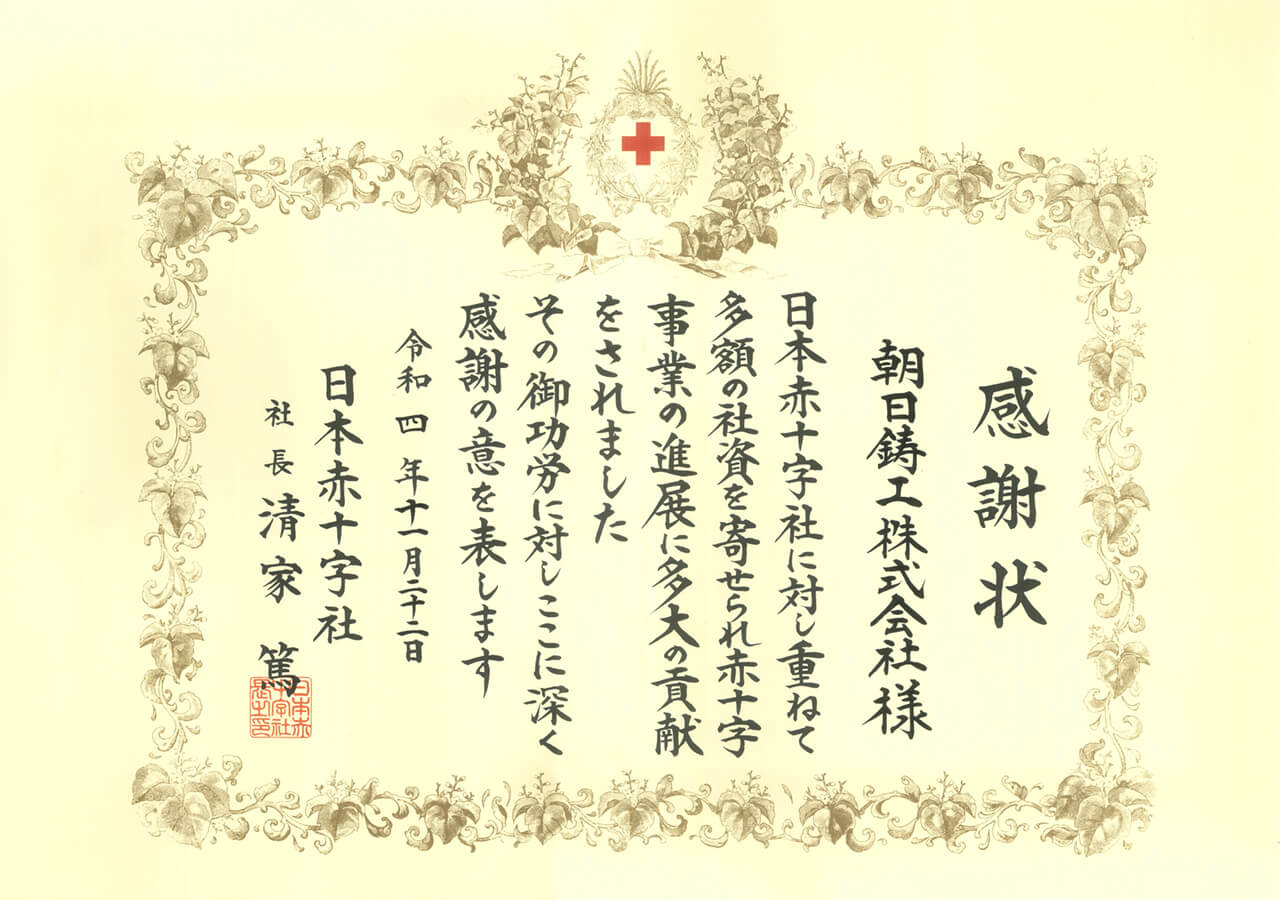 感謝状
朝日鋳工株式会社様
日本赤十字社に対し重ねて
多額の社資を寄せられ赤十字
事業の進展に多大の貢献
をされました
その御功労に対しここに深く
感謝の意を表します
令和四年十一月二十二日
日本赤十字社
社長 清家 篤